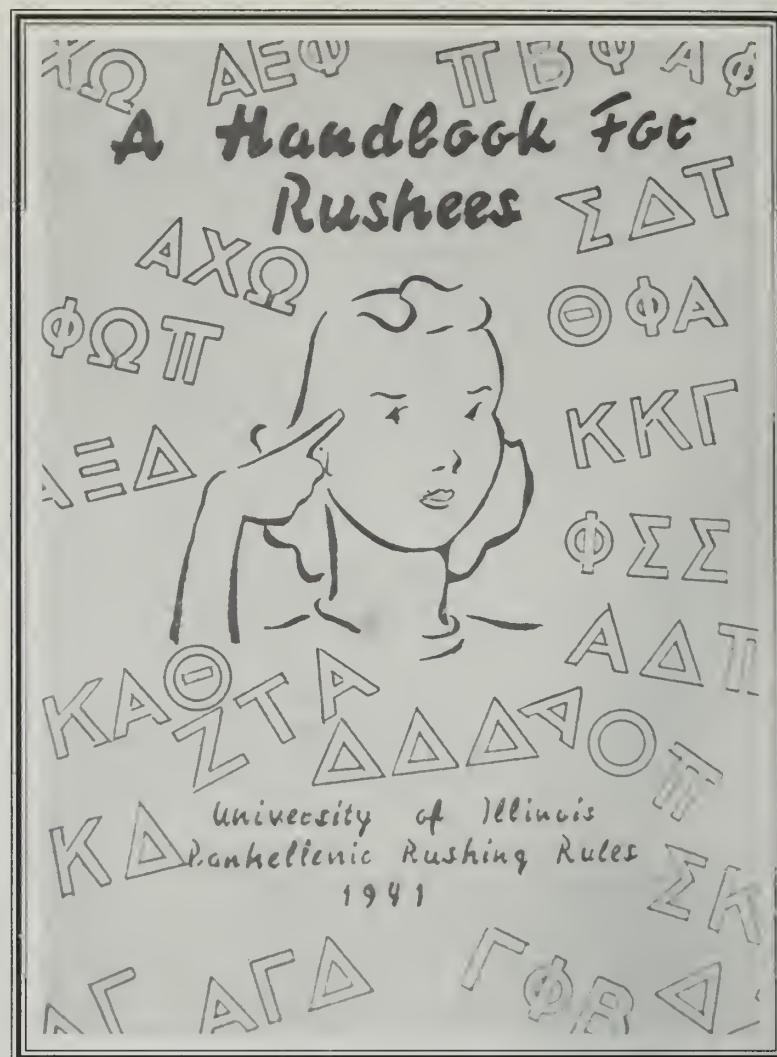 ΧΩ ΑΕΦ ΠΒΦ ΑΦ
A Handbook For
Rushees
ΣΔΤ
ΑΧΩ
ΘΦΑ
ΦΩΠ
ΚΚΓ
ΑΞΔ
ΦΣΣ
ΑΔΠ
ΚΑΘ
ΖΤΑ
ΔΔΔ
ΑΟΠ
ΚΔ
University of Illinois
Panhellenic Rushing Rules
1941
ΣΚ
ΔΓ
ΑΓΔ
ΓΦΒ
Δ